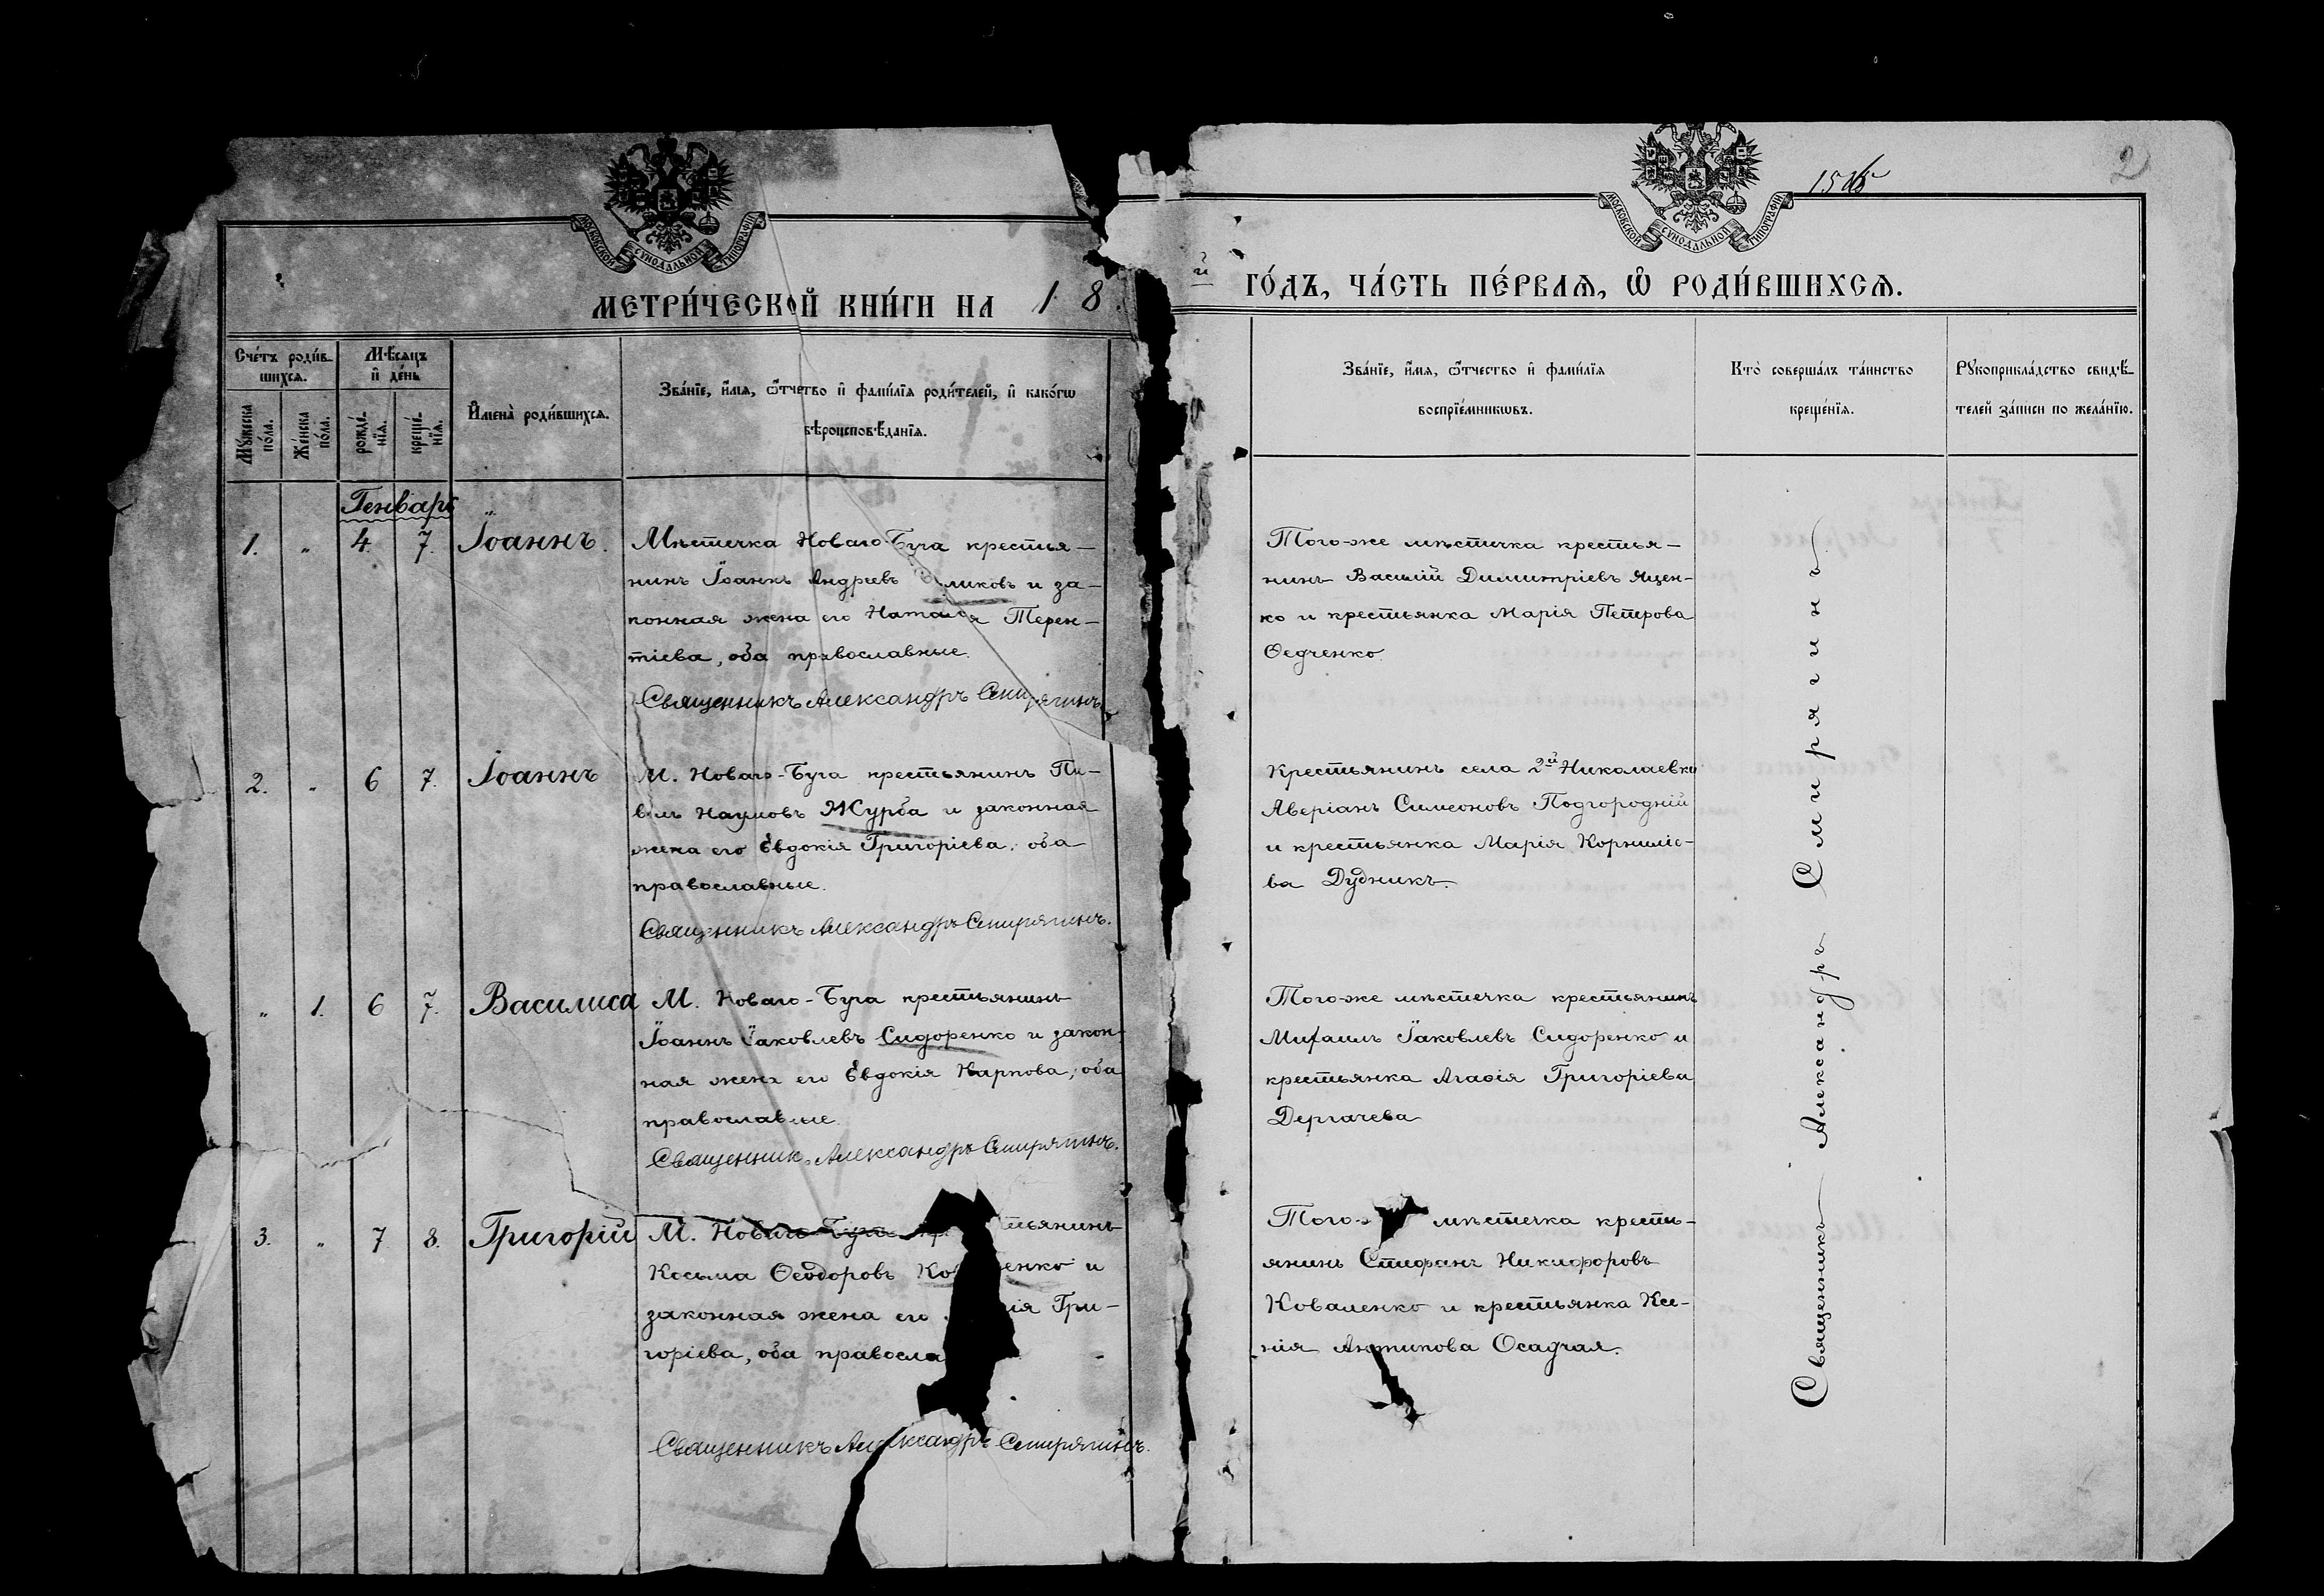 МОСКОВСКОЙ СУНОДАЛЬНОЙ ТИПОГРАФІИ
МЕТРИ́ЧЕСКОЙ КНИ́ГИ НА 1 8
Сче́тъ роди́в-
шихся.
Мѣсяцъ
и де́нь
Му́жеска по́ла.
Же́нска по́ла.
рожде́-
нїя.
креще́-
нїя.
Имена̀ роди́вшихся.
Зва́нїе, и́мя, ѻ́тчество и фами́лїя роди́телей, и како́гѡ
вѣроисповѣ́данїя.
Генварь
1. " 4. 7. Іоаннъ.
Мѣстечка Новаго-Буга крестья-
нинъ Іоаннъ Андреевъ ликовъ и за-
конная жена его Наталія Терен-
тіева, оба православные.
Священникъ Александръ Смирягинъ
2. " 6 7. Іоаннъ
М. Новаго-Буга крестьянинъ Па-
велъ Наумовъ Журба и законная
жена его Евдокія Григоріева, оба
православные.
Священникъ Александръ Смирягинъ.
" 1. 6 7. Василиса
М. Новаго-Буга крестьянинъ
Іоаннъ Іаковлевъ Сидоренко и закон-
ная жена его Евдокія Карпова, оба
православные.
Священникъ Александръ Смирягинъ.
3. " 7 8. Григорій
М. Новаго-Буга кр тьянинъ
Косьма Ѳеодоровъ Ко енко и
законная жена его ія Гри-
горіева, оба правосла
Священникъ Александръ Смирягинъ.
2
МОСКОВСКОЙ СУНОДАЛЬНОЙ ТИПОГРАФІИ
й ГО́ДЪ, ЧА́СТЬ ПЕ́РВАЯ, Ѡ РОДИ́ВШИХСЯ.
Зва́нїе, и́мя, ѻ́тчество и фами́лїя
воспрїе́мникѡвъ.
Кто̀ соверша́лъ та́инство
креще́нїя.
Рꙋкоприкла́дство свидѣ́-
телей за́писи по жела́нїю.
Того-же мѣстечка крестья-
нинъ Василій Димитріевъ Яцен-
ко и крестьянка Марія Петрова
Ѳедченко.
Крестьянинъ села 2й Николаевки
Аверіанъ Симеоновъ Подгородній
и крестьянка Марія Корниліе-
ва Дудникъ.
Того-же мѣстечка крестьянинъ
Михаилъ Іаковлевъ Сидоренко и
крестьянка Агаѳія Григоріева
Дергачева
Того- мѣстечка кресть-
янинъ Стефанъ Никифоровъ
Коваленко и крестьянка Ксе-
нія Антипова Осадчая.
Священникъ Александръ Смирягинъ